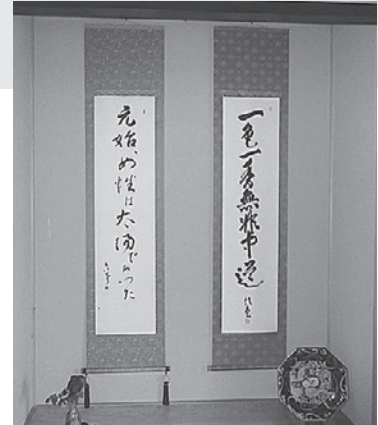 一色一香無非中道
元始、女性は太陽であった